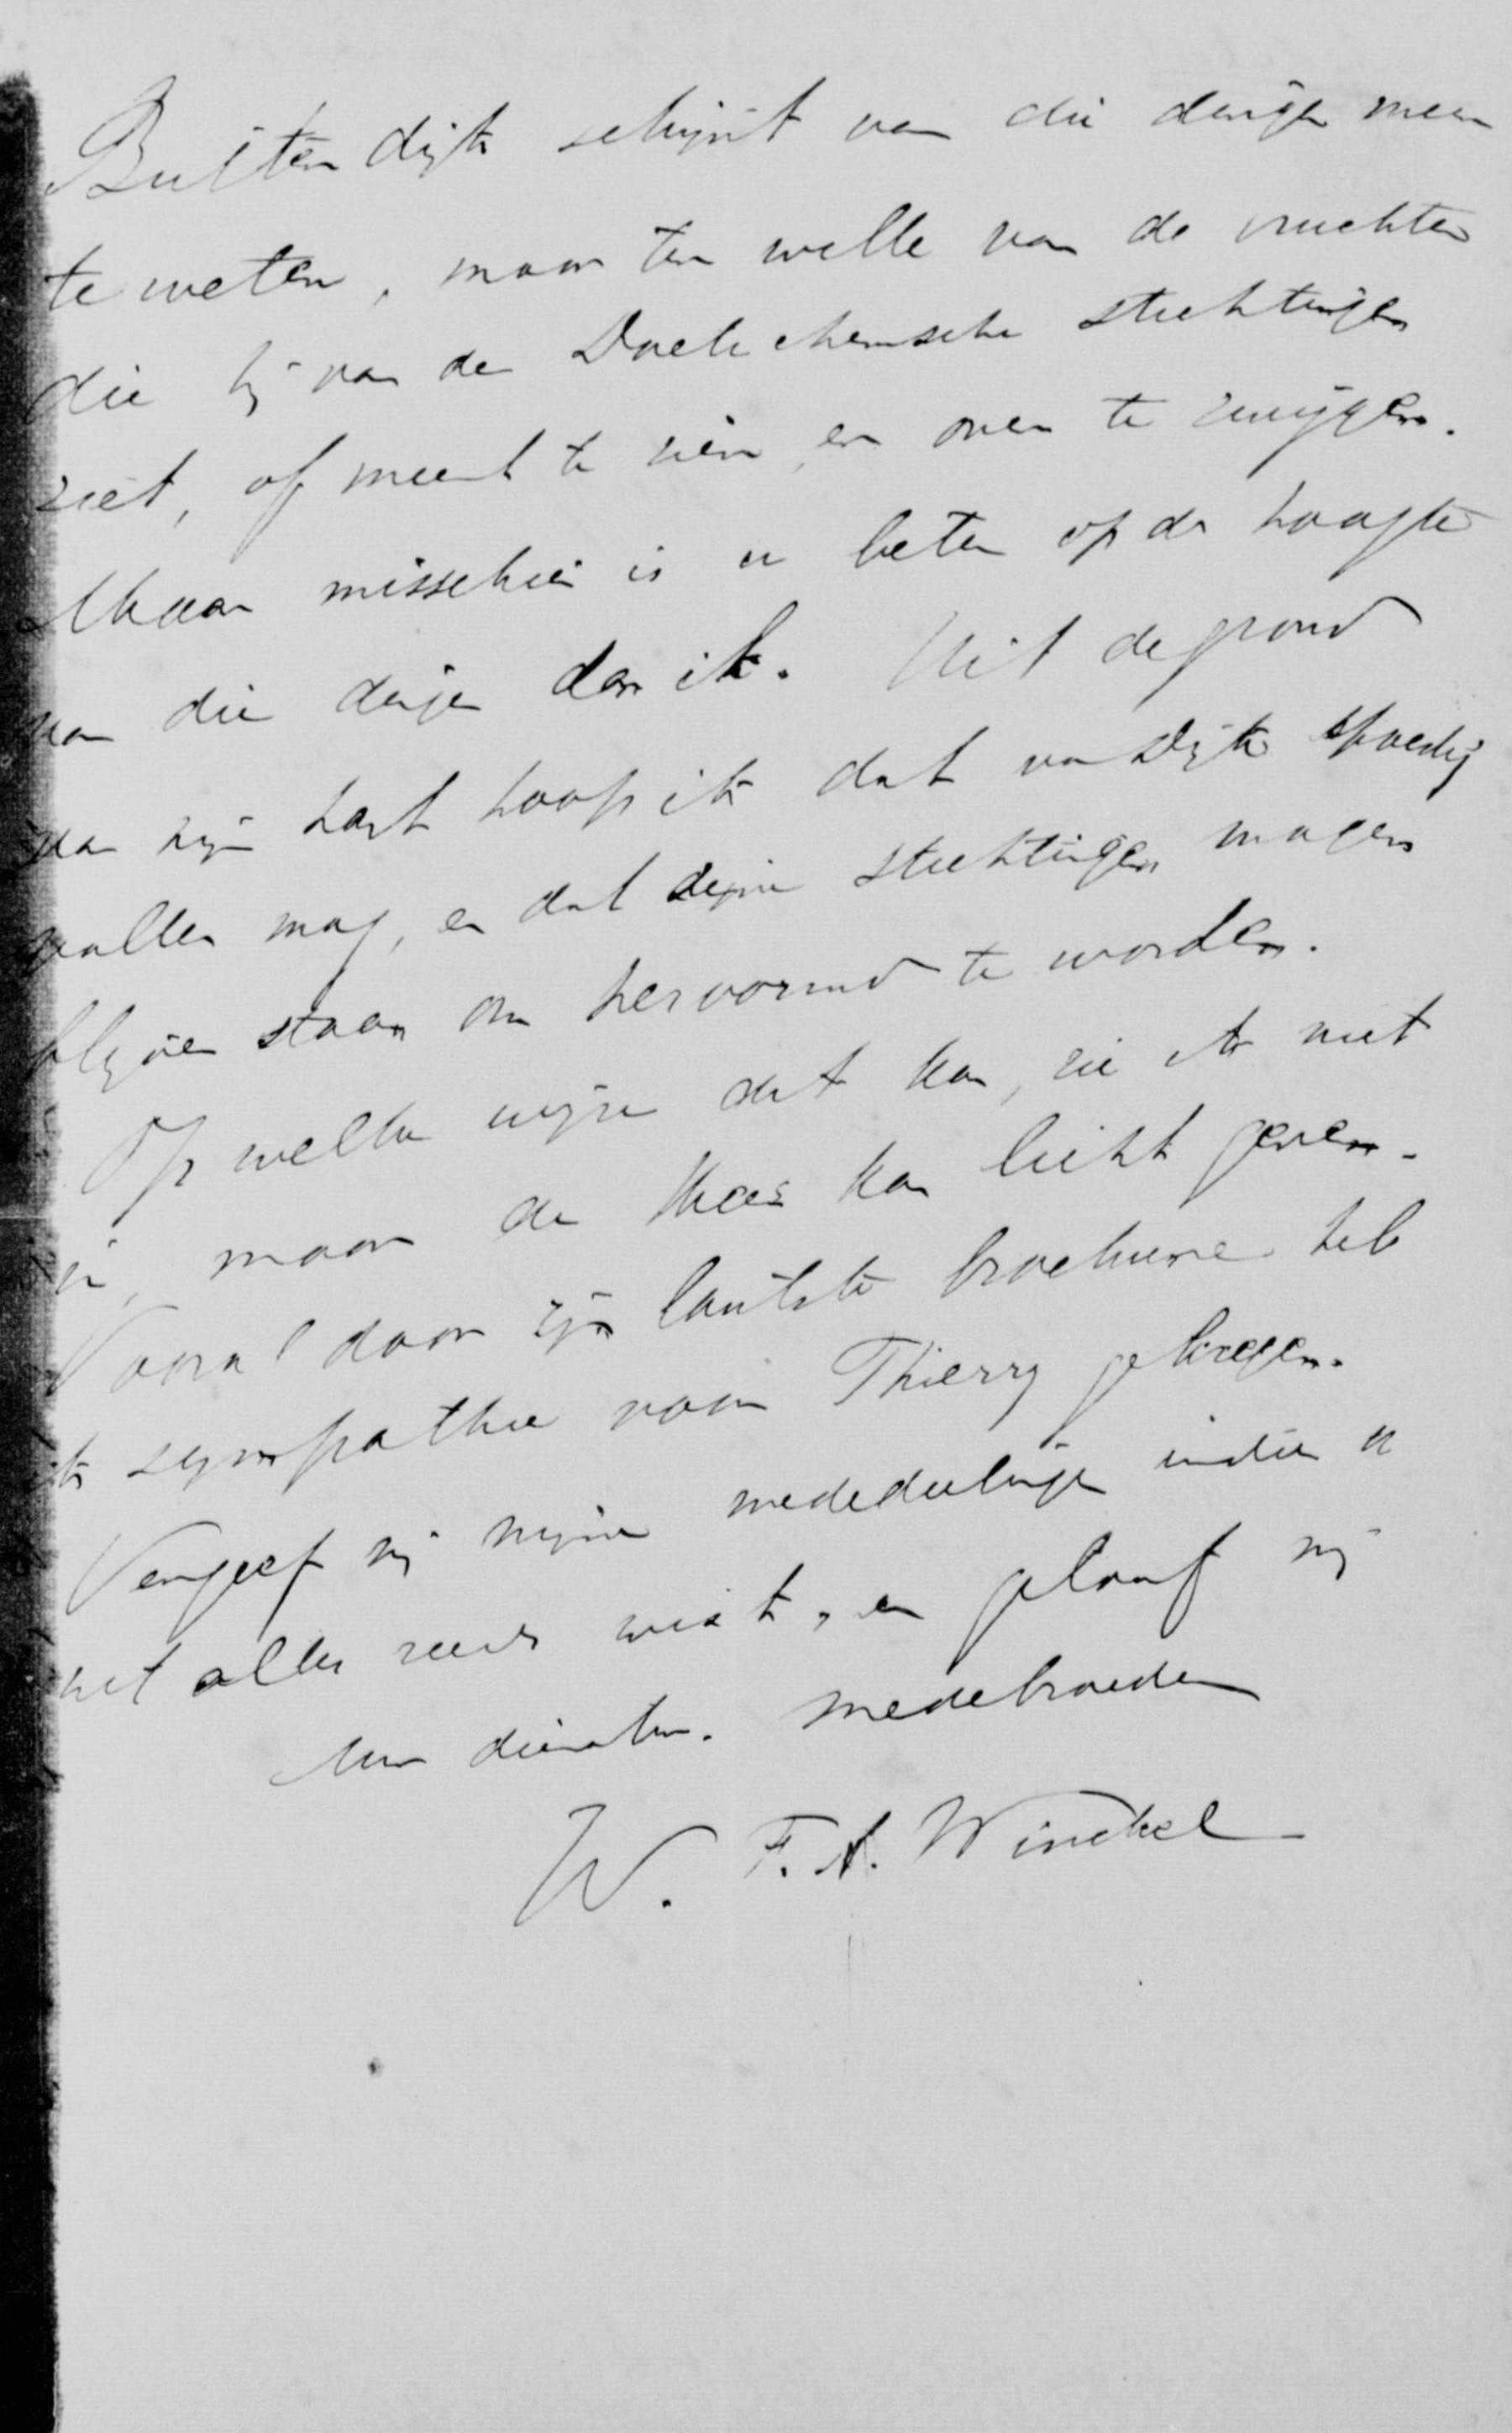 Buitendijk schijnt van die dingen meer
te weten, maar ten wille van de vruchten
die hij van de Doetichemsche stichtingen
ziet, of meent te zien, er over te zwijgen.
Maar misschien is u beter op de hoogte
van die dingen dan ik. Uit de grond
van mijn hart hoop ik dat van Dijk spoedig
vallen mag, en dat zijne stichtingen mogen
blijven staan om hervormd te worden.
Op welke wijze dat kan, zie ik niet
in, maar de Heer kan licht geven.
Vooral door zijn laatste brochure heb
ik sympathie voor Thierry gekregen.
Vergeef mij mijne mededeelingen indien u
het alles reeds wist, en geloof mij
Uw dienstw. medebroeder
W. F. A. Winckel